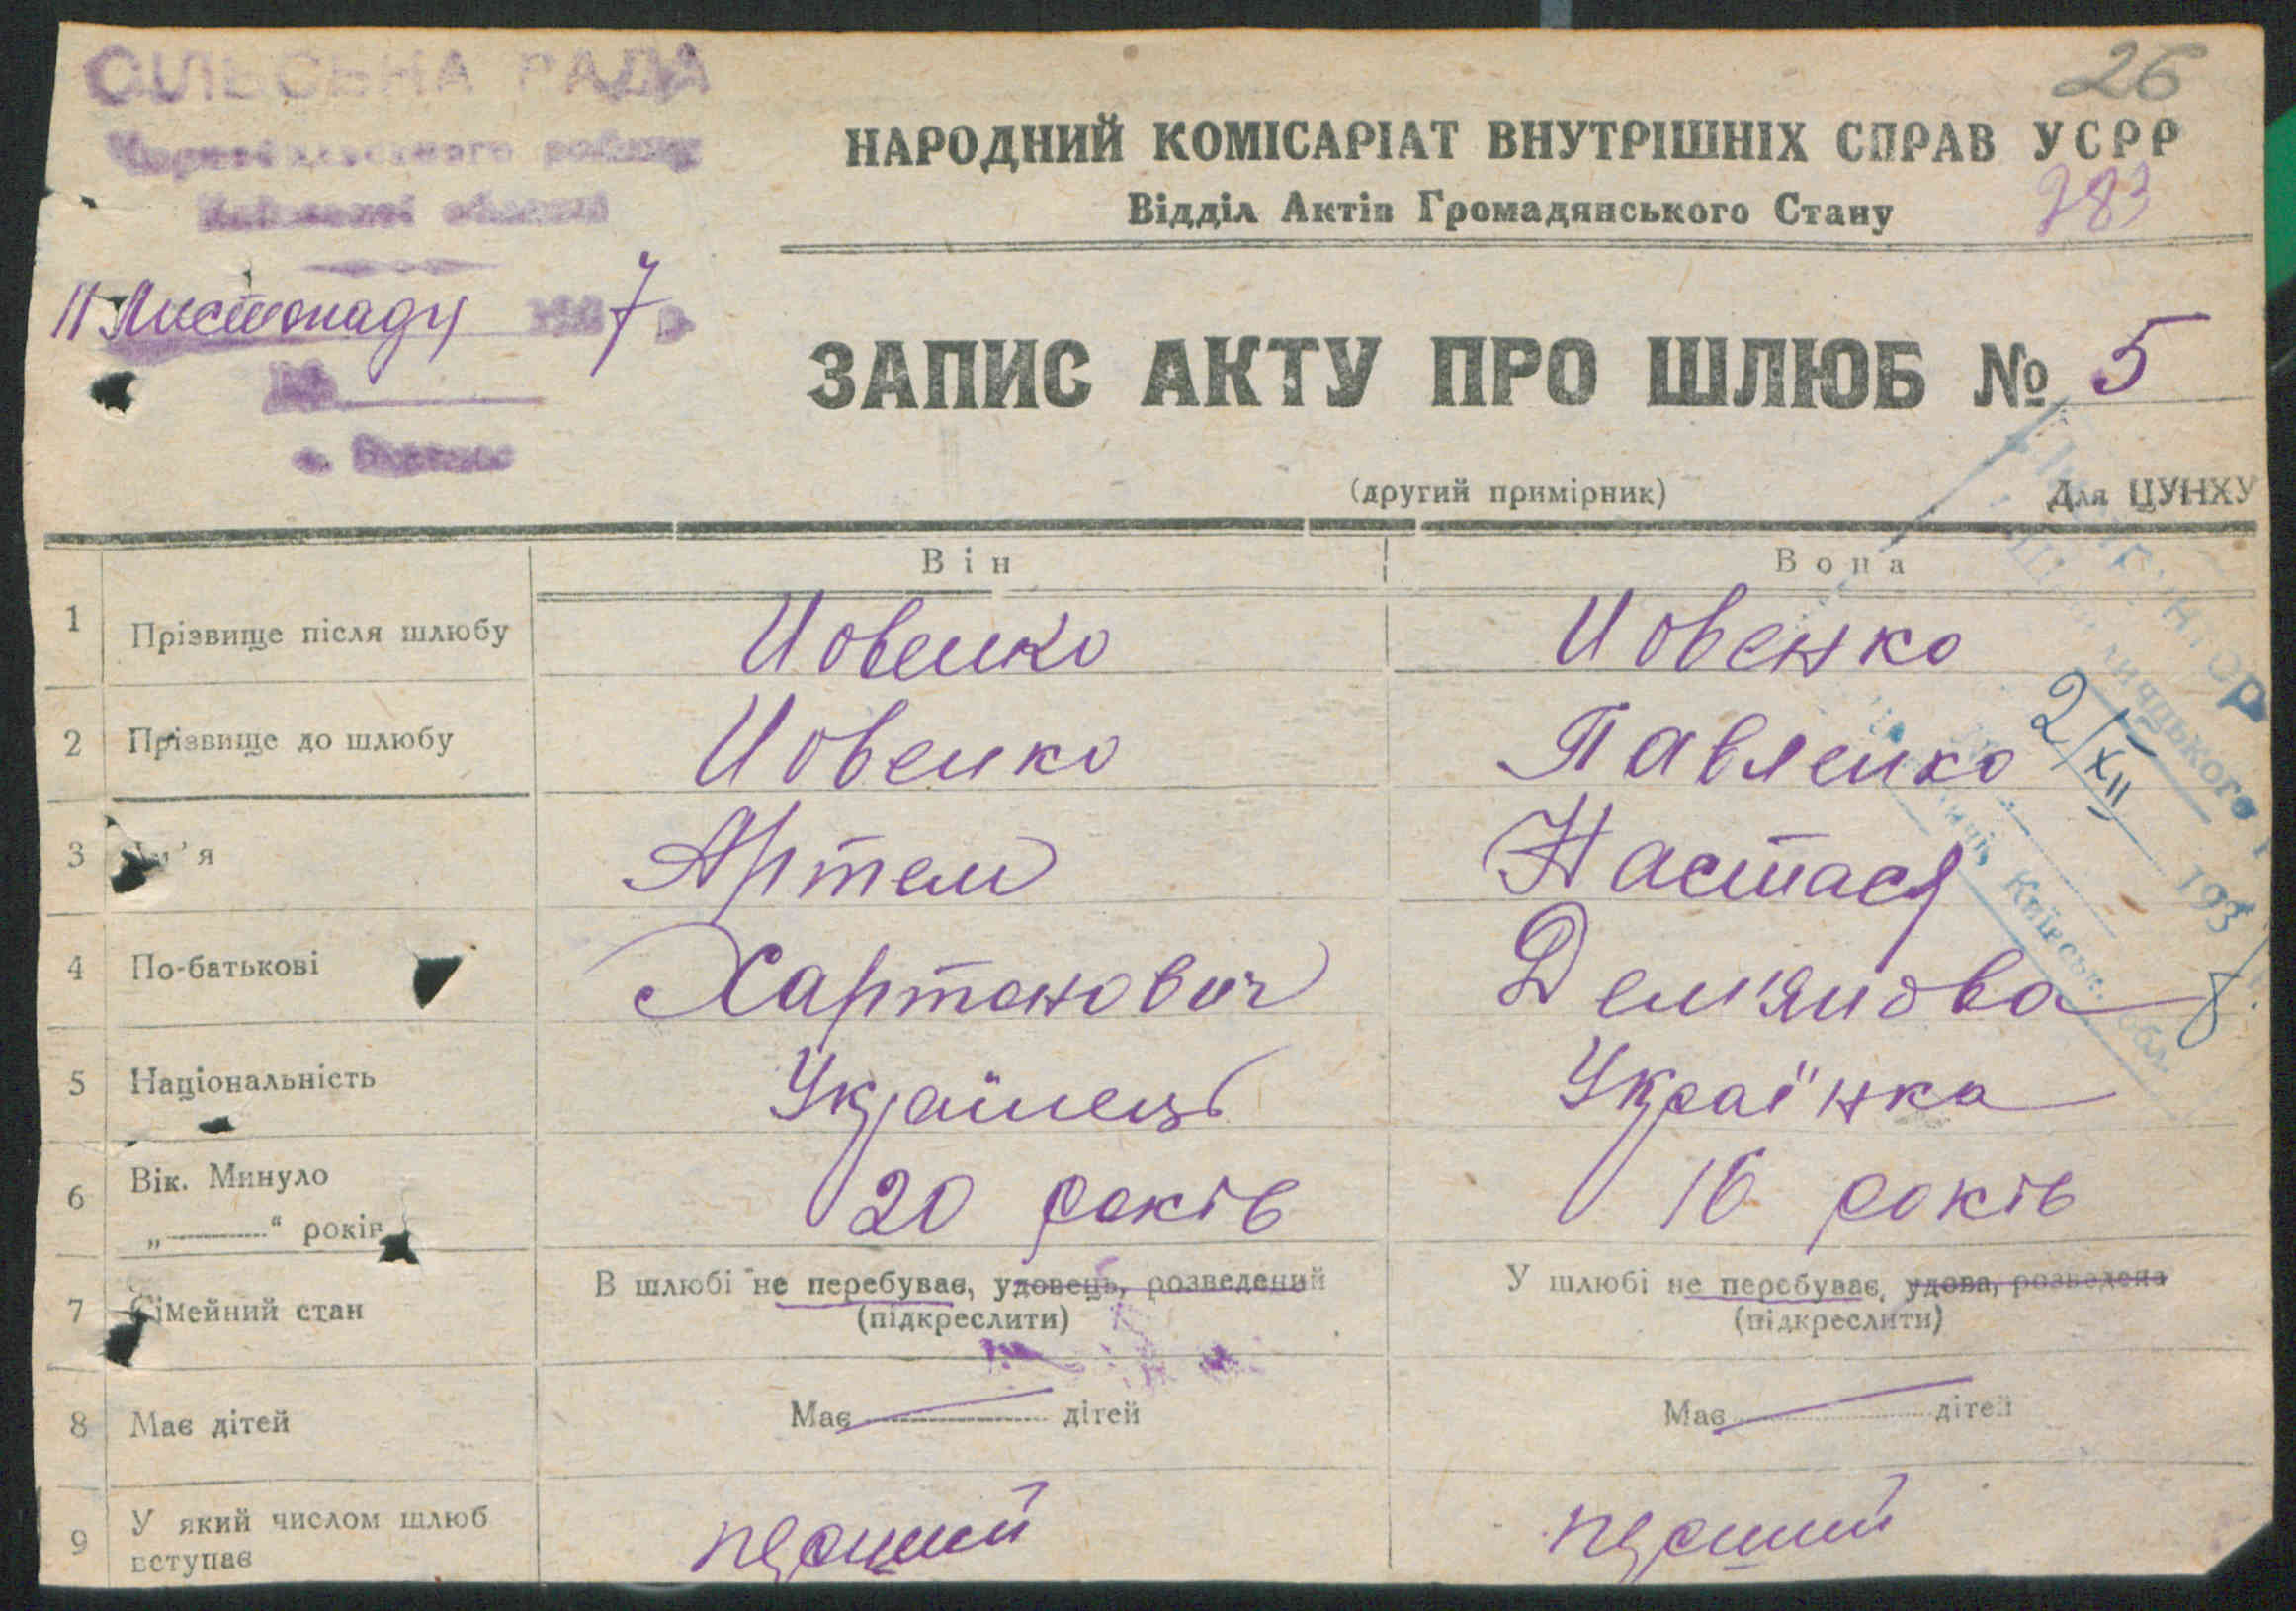 СІЛЬСЬКА РАДА
26
НАРОДНИЙ КОМІСАРІАТ ВНУТРІШНІХ СПРАВ УСРР
Відділ Актів Громадянського Стану
283
11 Листопаду 1937 р.
№
ЗАПИС АКТУ ПРО ШЛЮБ № 5
(другий примірник)
Для ЦУНХУ
Він
Вона
1 Прізвище після шлюбу Иовенко Иовенко
2 Прізвище до шлюбу Иовенко Павленко
2/XII 1938
3 Ім'я Артем Настася
4 По-батькові Хартонович Дем'янова
Київськ. обл.
5 Національність Українець Українка
6 Вік. Минуло
„ " років 20 років 16 років
7 Сімейний стан В шлюбі не перебуває, удовець, розведений У шлюбі не перебуває, удова, розведена
(підкреслити) (підкреслити)
8 Має дітей Має дітей Має дітей
9 У який числом шлюб
вступає перший перший